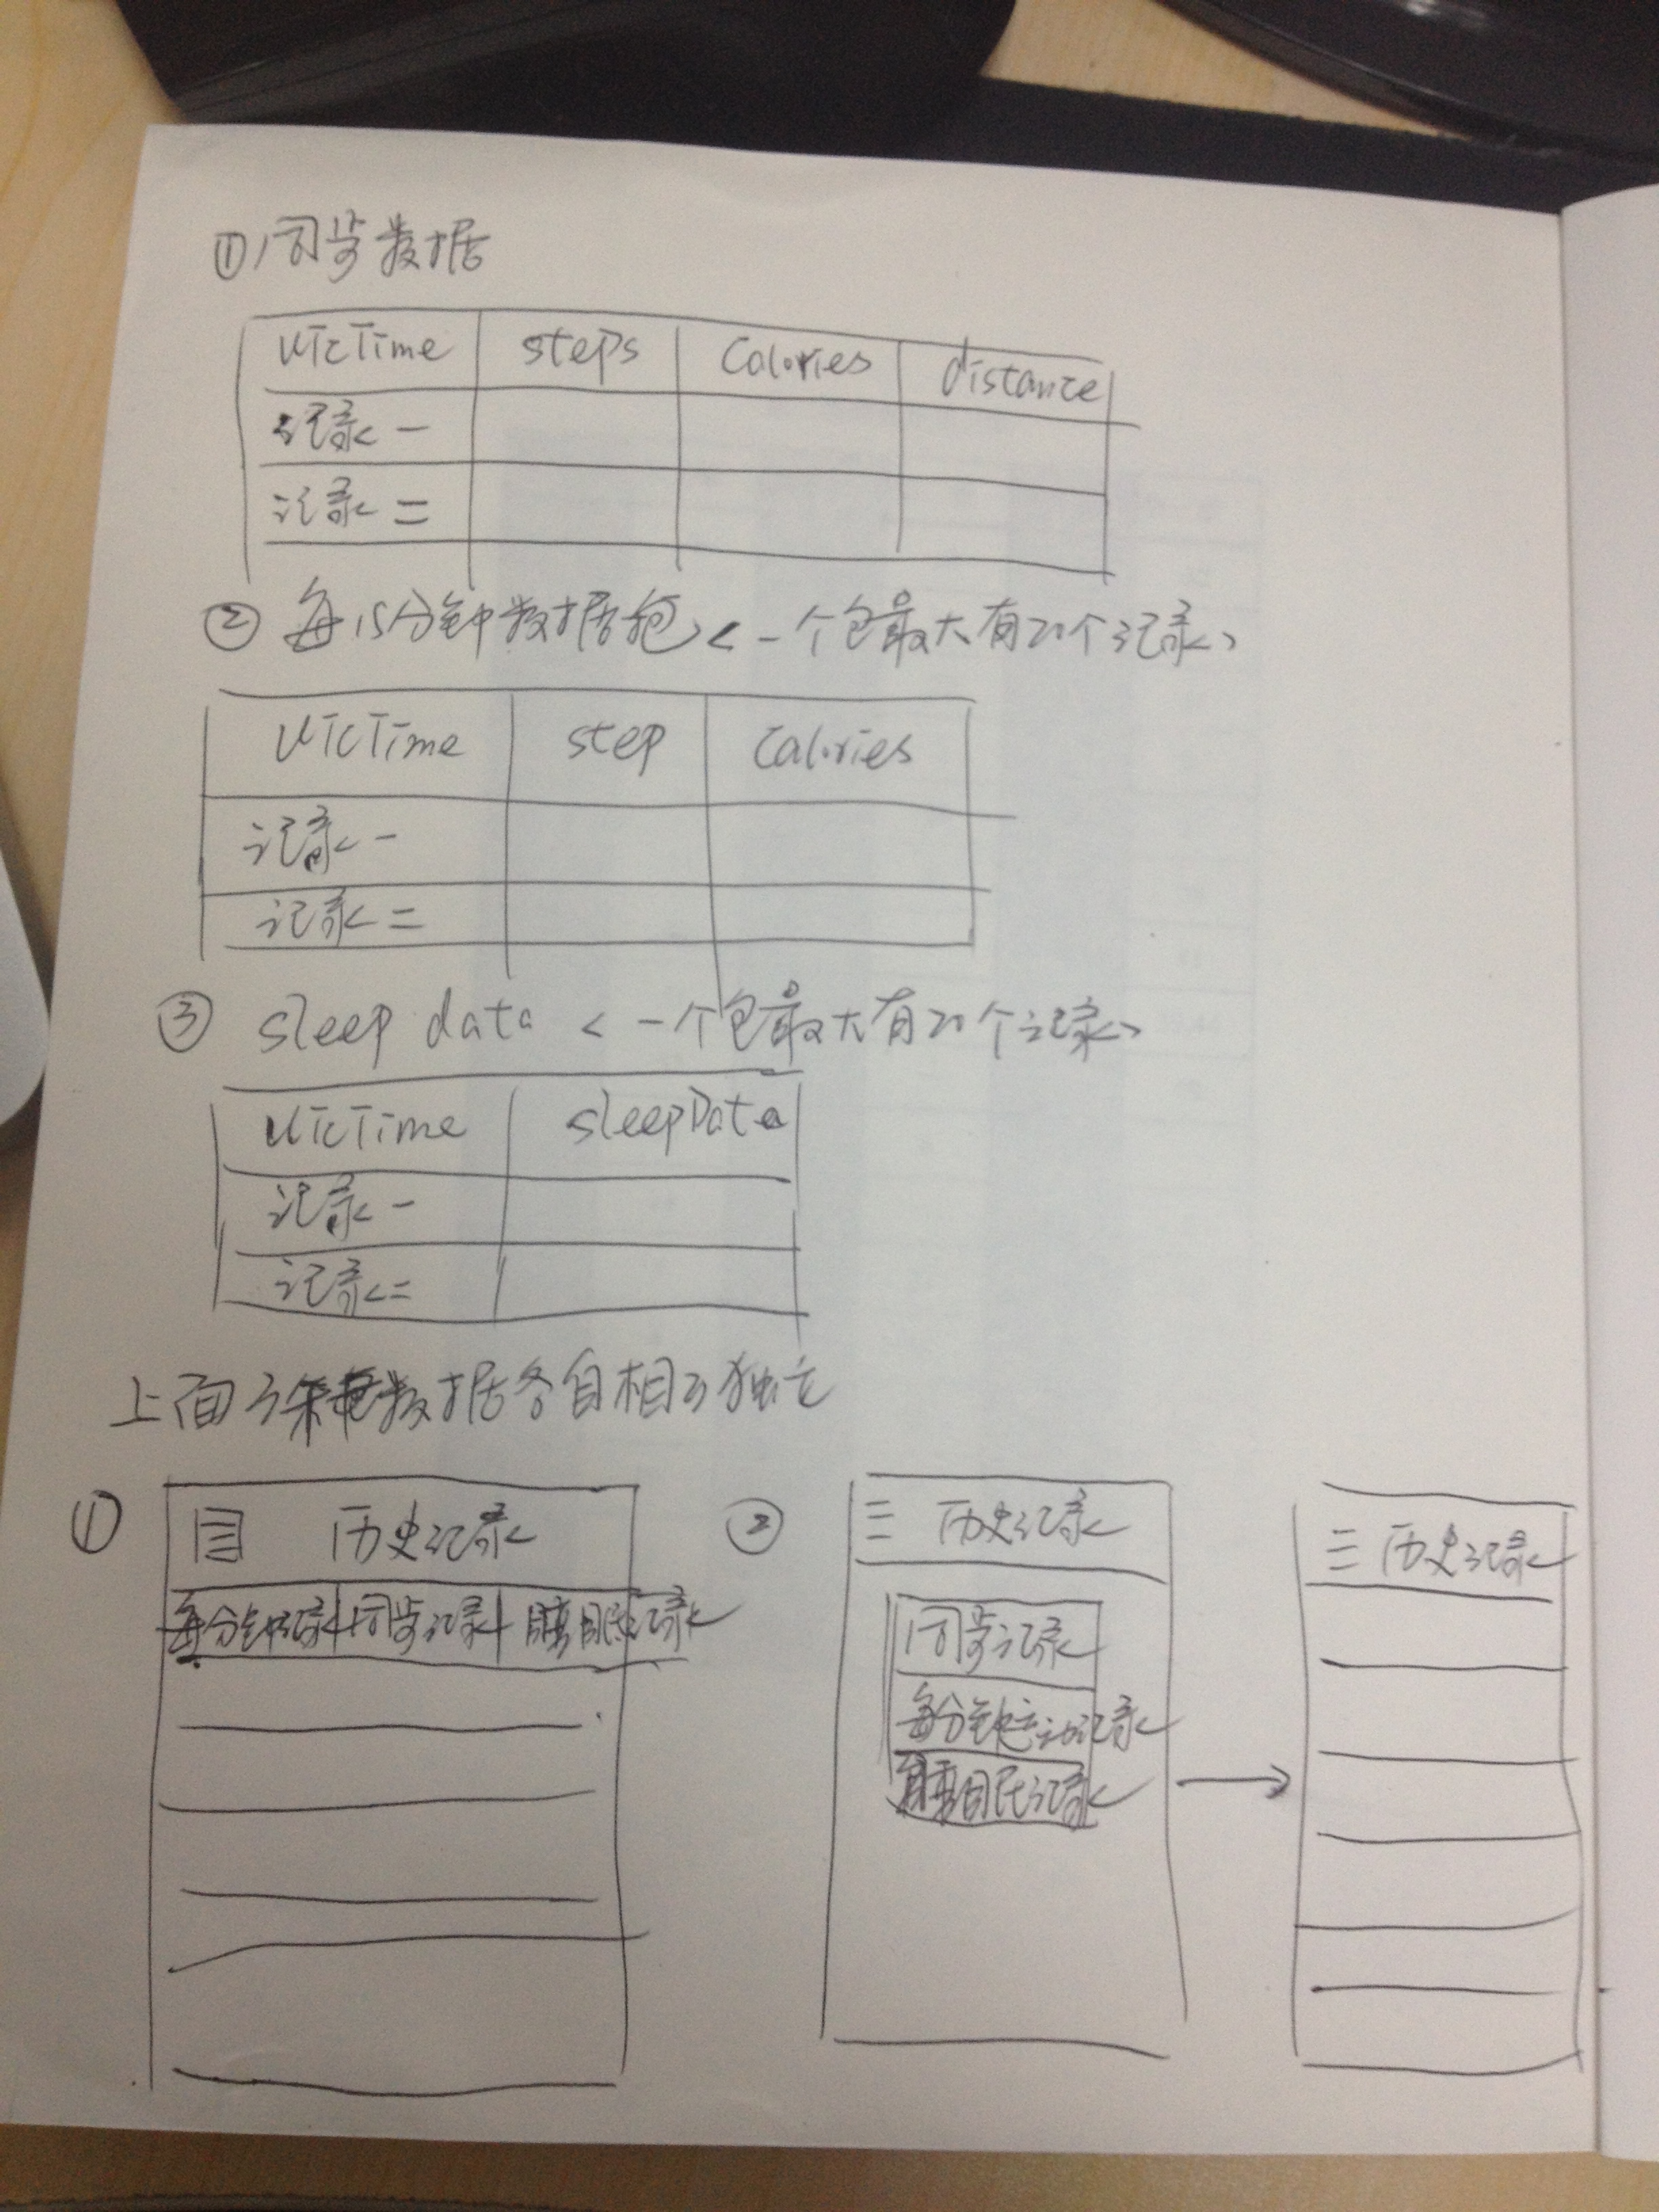 ① 同步数据
UTCTime steps Calories distance
记录一
记录二
② 每15分钟数据包<一个包最大有20个记录>
UTCTime step Calories
记录一
记录二
③ sleep data <一个包最大有20个记录>
UTCTime sleepData
记录一
记录二
上面三种数据各自相互独立
① 历史记录
每分钟记录 同步记录 睡眠记录
② 历史记录
同步记录
每分钟运动记录
睡眠记录
历史记录